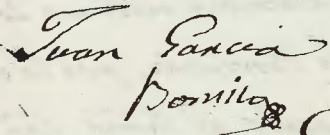 Juan Garcia
Bonilla